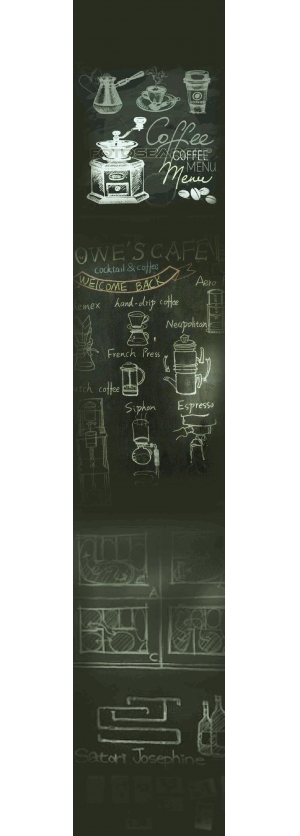 Coffee
COFFEE
MENU
Menu
OWE'S CAFE
cocktail & coffee
WELCOME BACK
Aero
mex
hand-drip coffee
Neapolitan
French Press
tch coffee
Siphon
Espresso
A
C
Satori Josephine